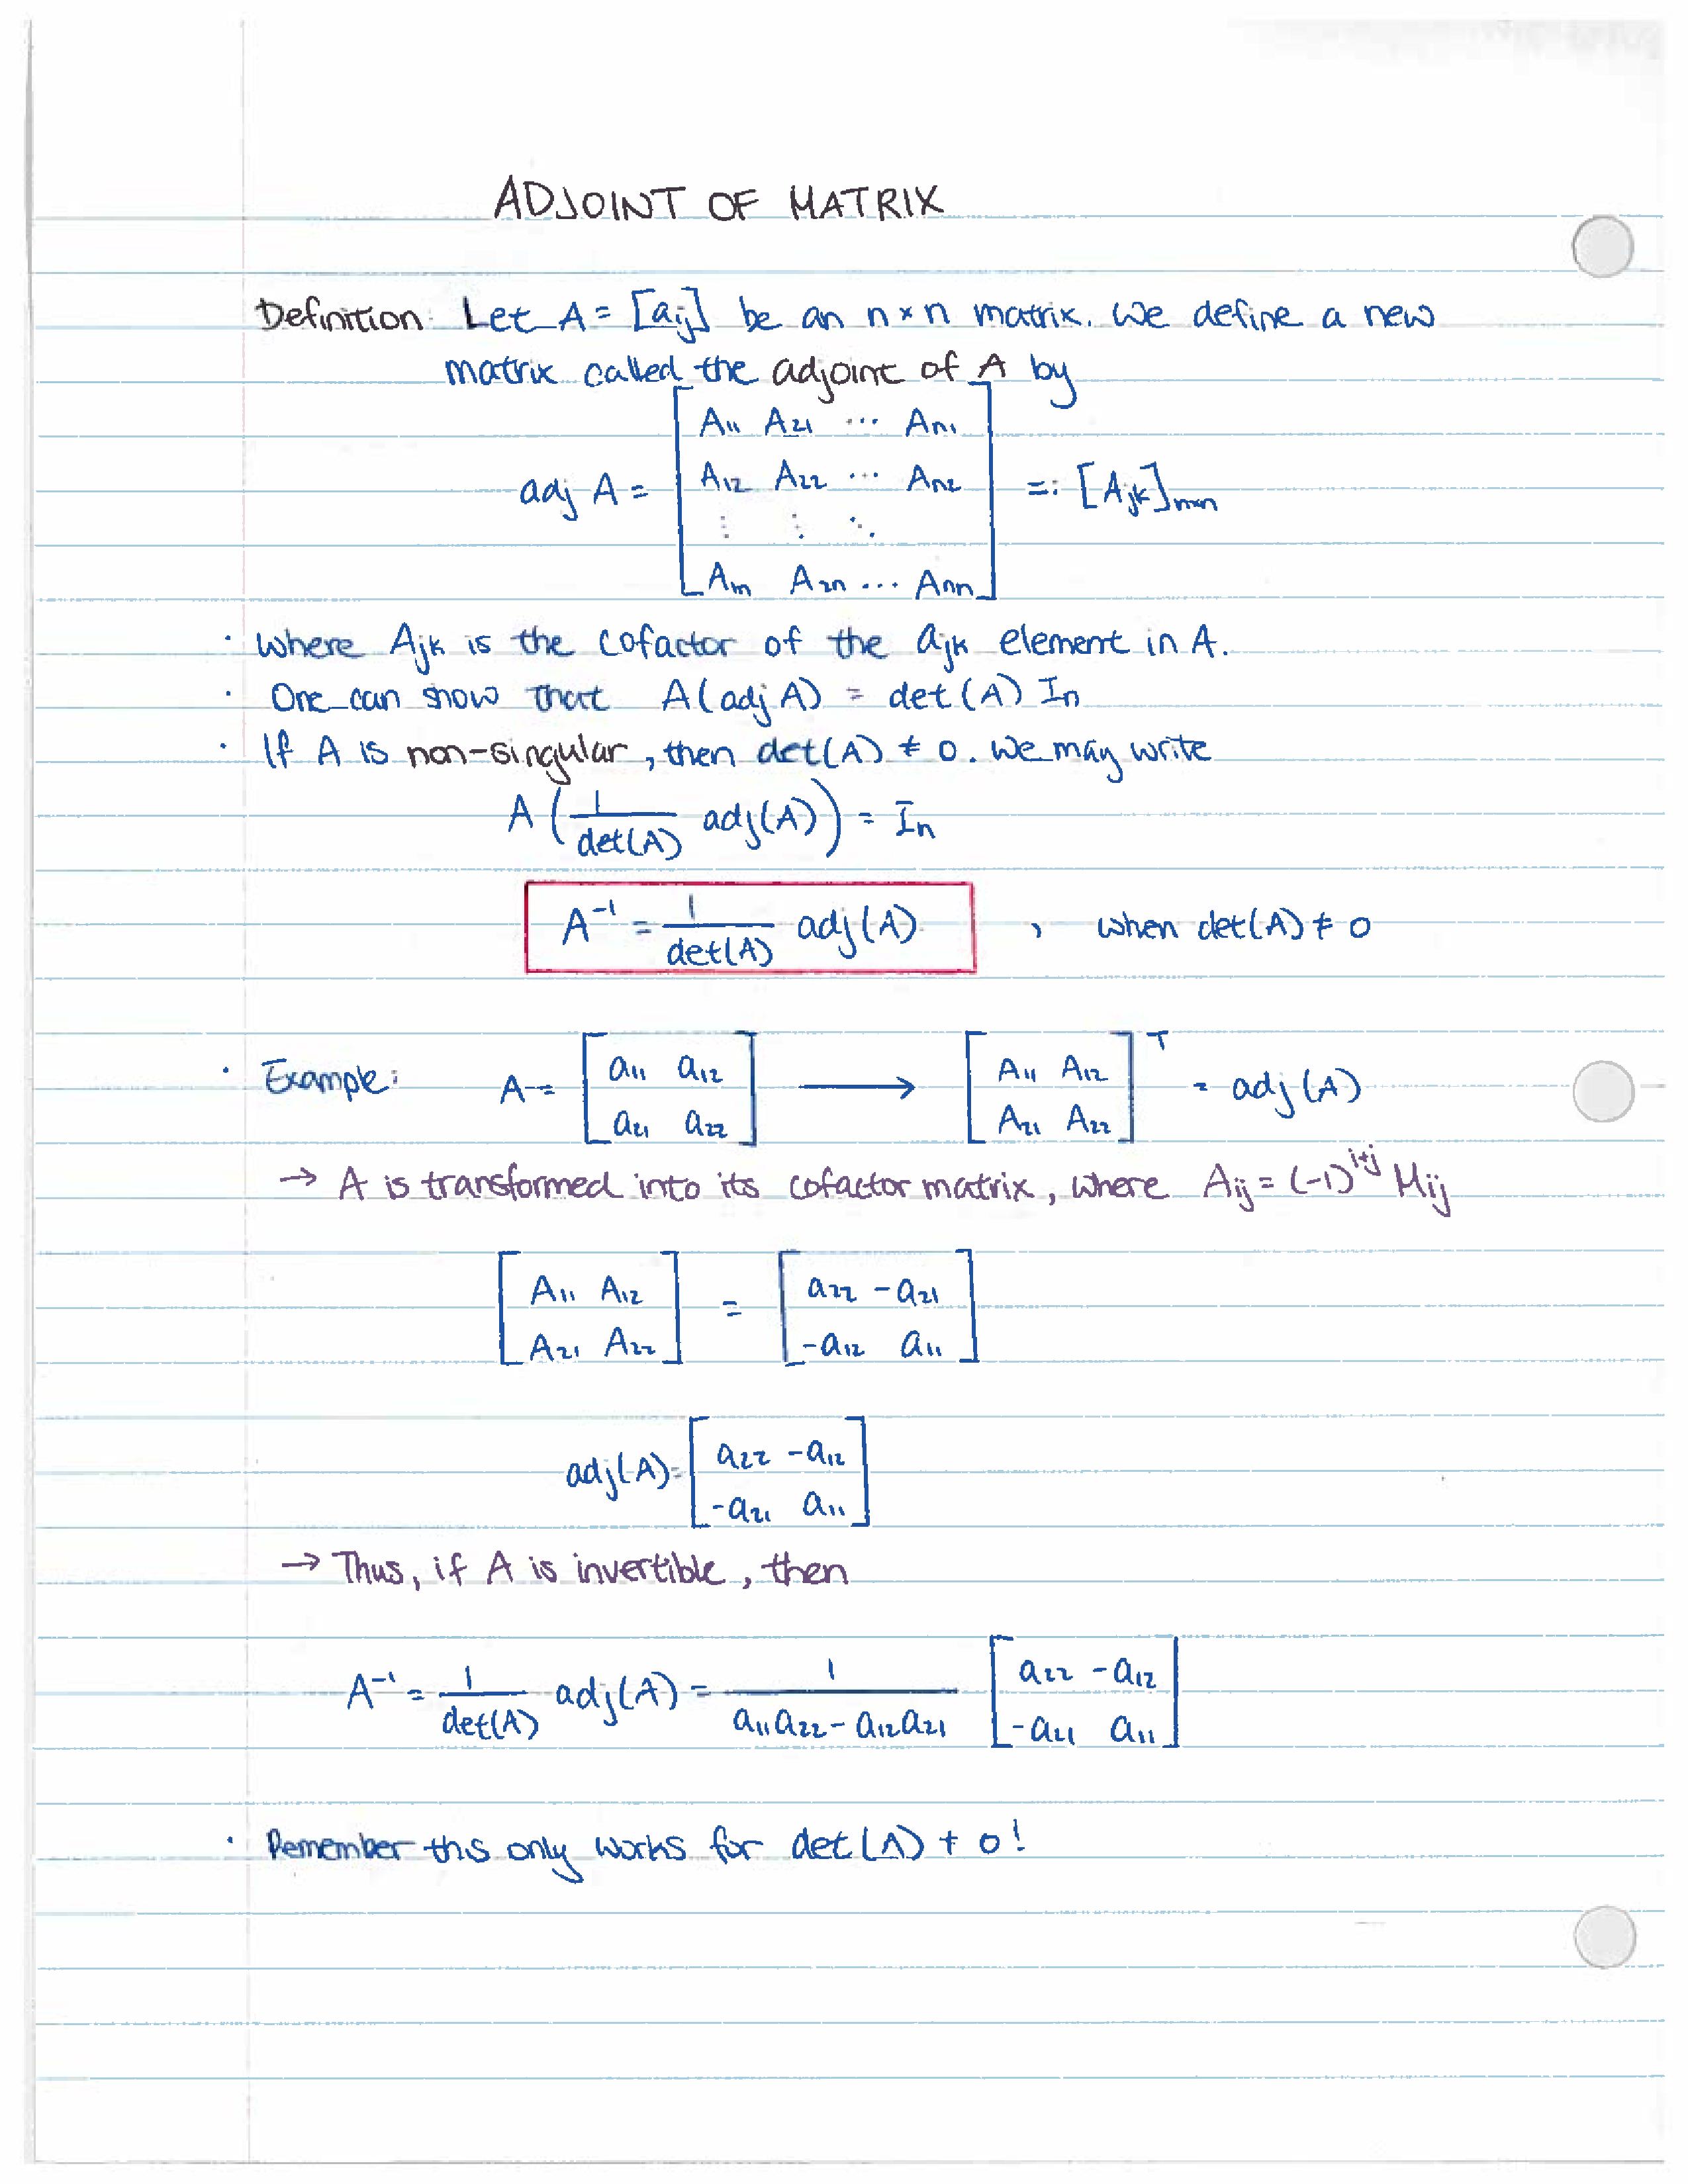 ADJOINT OF MATRIX
Definition: Let A = [aij] be an n × n matrix. We define a new
matrix called the adjoint of A by
adj A = [ A11 A21 ... An1
A12 A22 ... An2
⋮ ⋮ ⋱
A1n A2n ... Ann ] =: [Ajk]nxn
· where Ajk is the cofactor of the ajk element in A.
· One can show that A(adj A) = det(A) In
· If A is non-singular, then det(A) ≠ 0. We may write
A (1/det(A) adj(A)) = In
A⁻¹ = 1/det(A) adj(A) , when det(A) ≠ 0
· Example: A = [ a11 a12
a21 a22 ] → [ A11 A12
A21 A22 ]ᵀ = adj(A)
→ A is transformed into its cofactor matrix, where Aij = (-1)^i+j Mij
[ A11 A12
A21 A22 ] = [ a22 -a21
-a12 a11 ]
adj(A) = [ a22 -a12
-a21 a11 ]
→ Thus, if A is invertible, then
A⁻¹ = 1/det(A) adj(A) = 1/(a11a22 - a12a21) [ a22 -a12
-a21 a11 ]
· Remember this only works for det(A) ≠ 0!